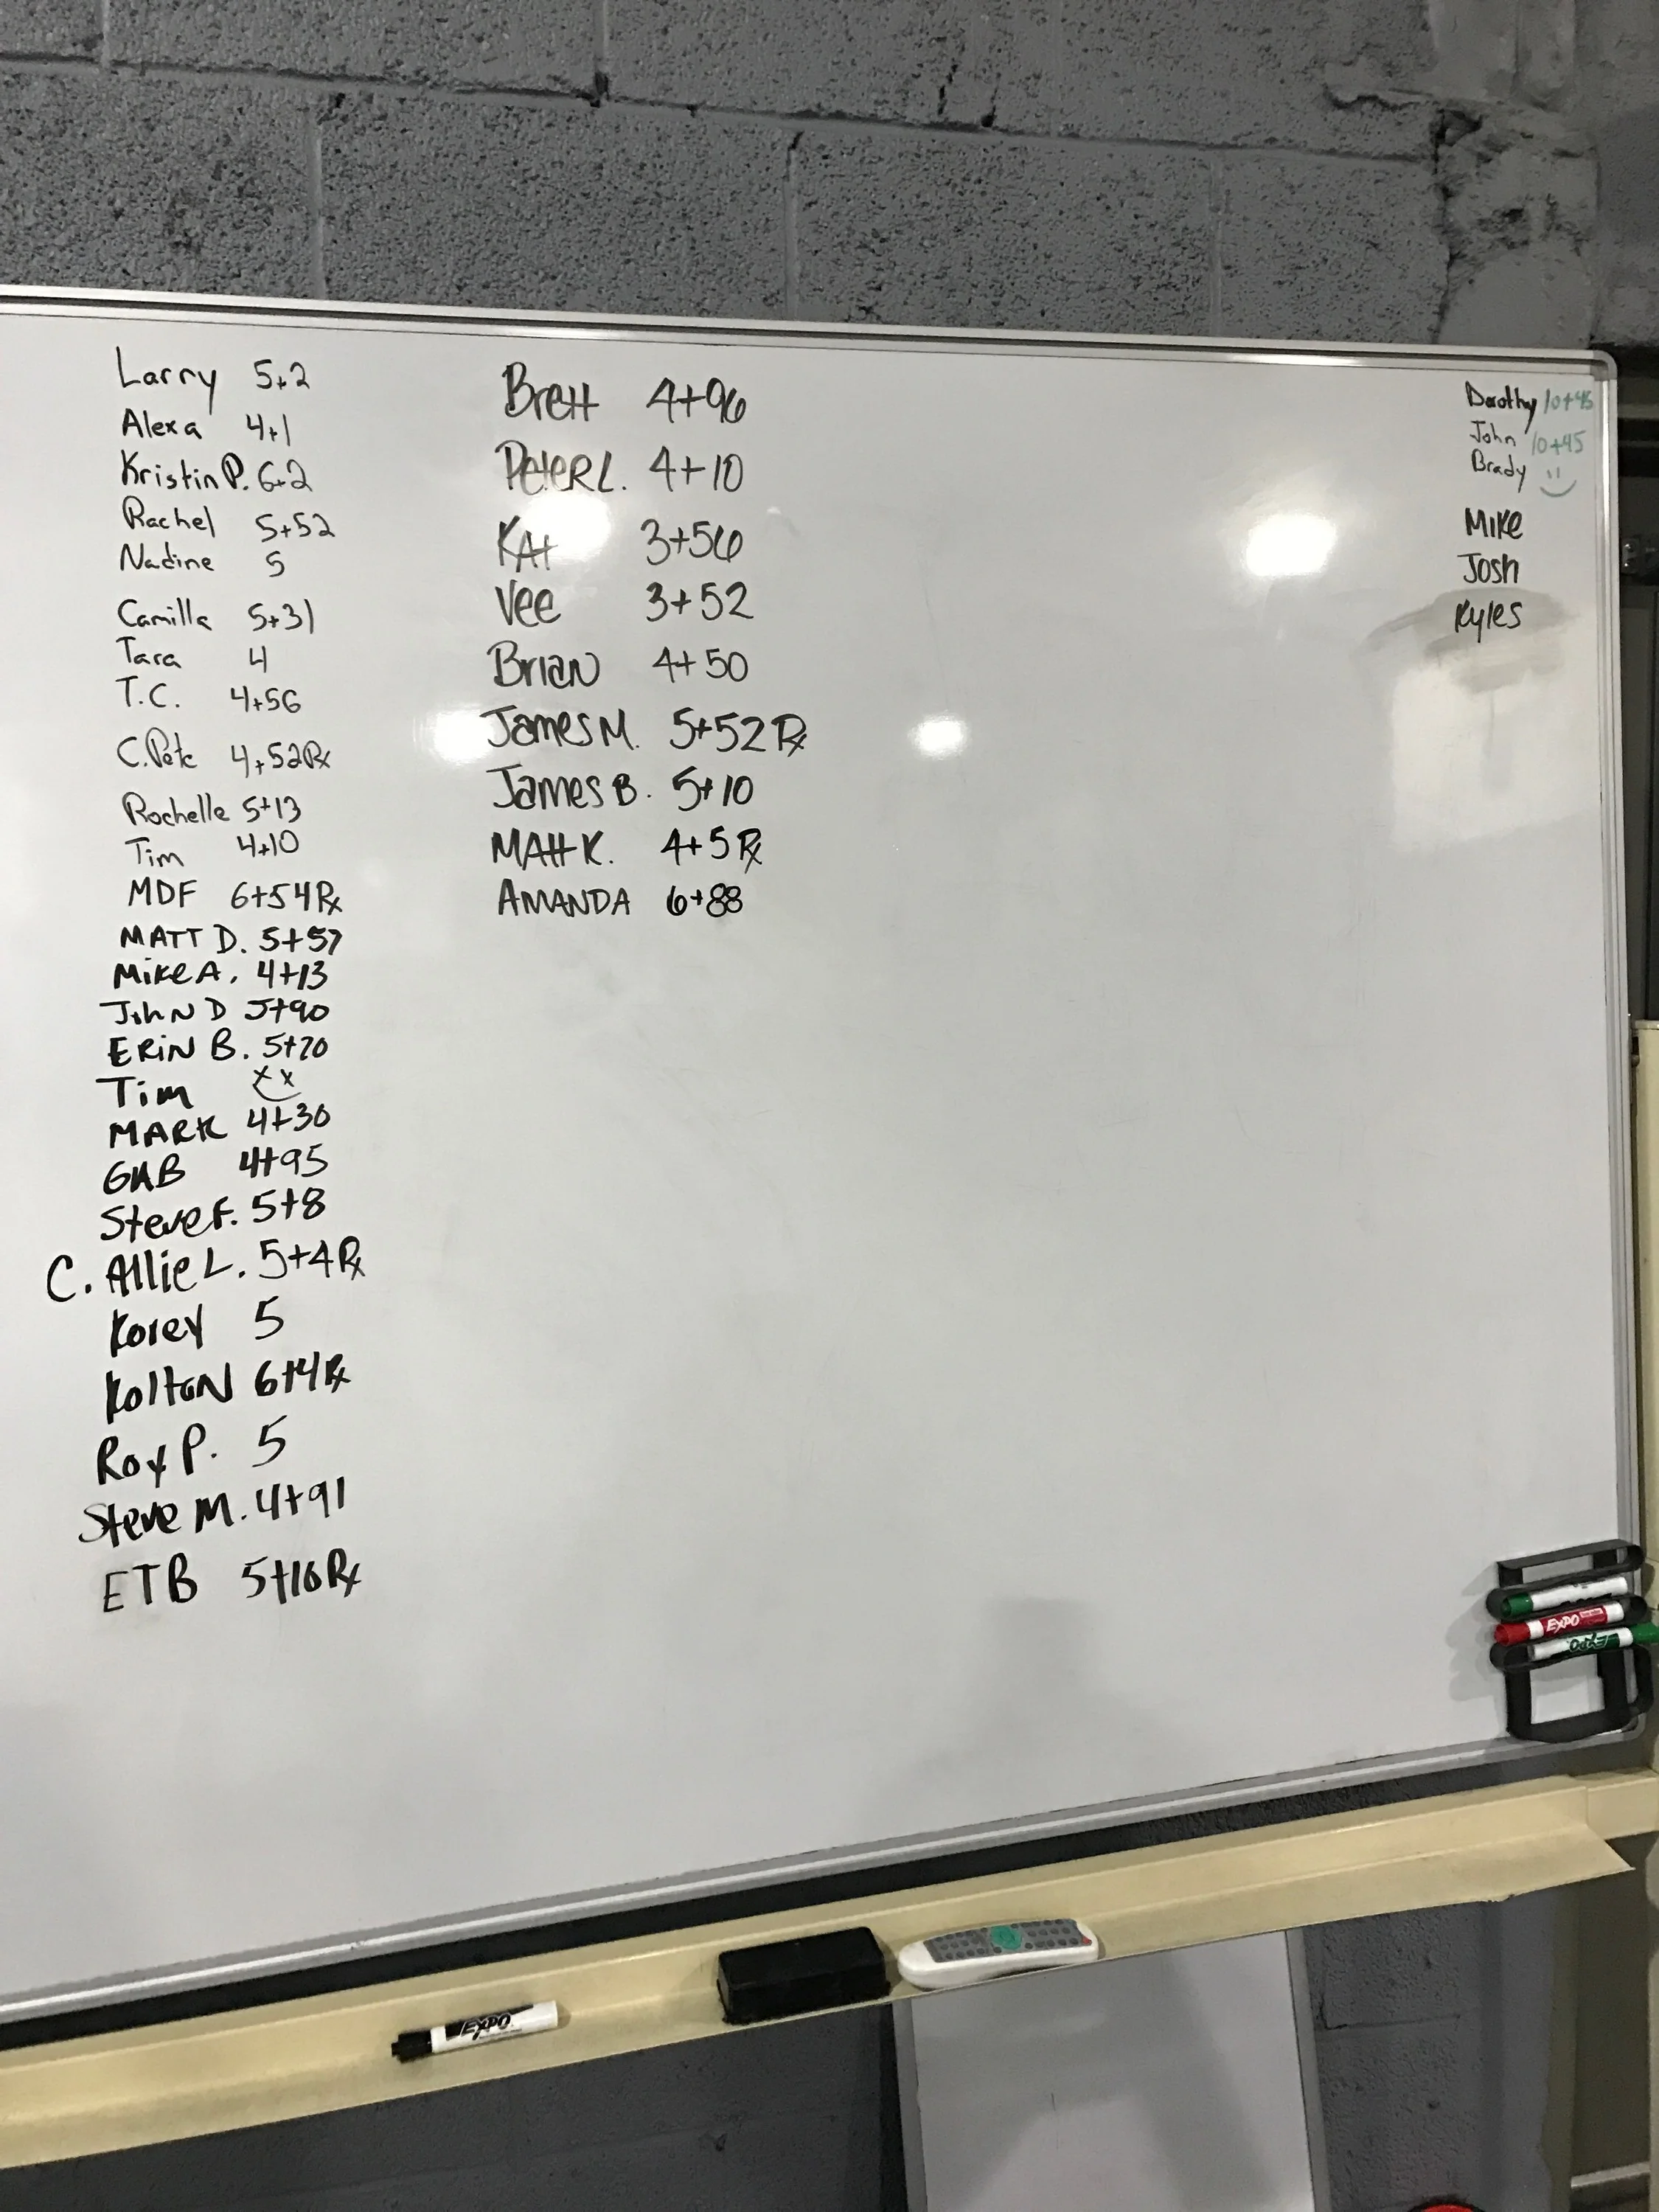 Larry 5+2
Alexa 4+1
Kristin P. 6+2
Rachel 5+52
Nadine 5
Camilla 5+31
Tara 4
T.C. 4+56
C.Pete 4+52Rx
Rochelle 5+13
Tim 4+10
MDF 6+54Rx
MATT D. 5+57
Mike A. 4+13
John D 5+90
ERIN B. 5+70
Tim
MARK 4+30
GAB 4+95
Steve F. 5+8
C. Allie L. 5+4Rx
Korey 5
Kolton 6+4Rx
Roy P. 5
Steve M. 4+91
ETB 5+16Rx
Brett 4+96
Peter L. 4+10
KAt 3+56
Vee 3+52
Brian 4+50
James M. 5+52 Rx
James B. 5+10
Matt K. 4+5 Rx
AMANDA 6+88
Dorothy 10+45
John 10+45
Brady
Mike
Josh
Kyles
EXPO
EXPO
EXPO